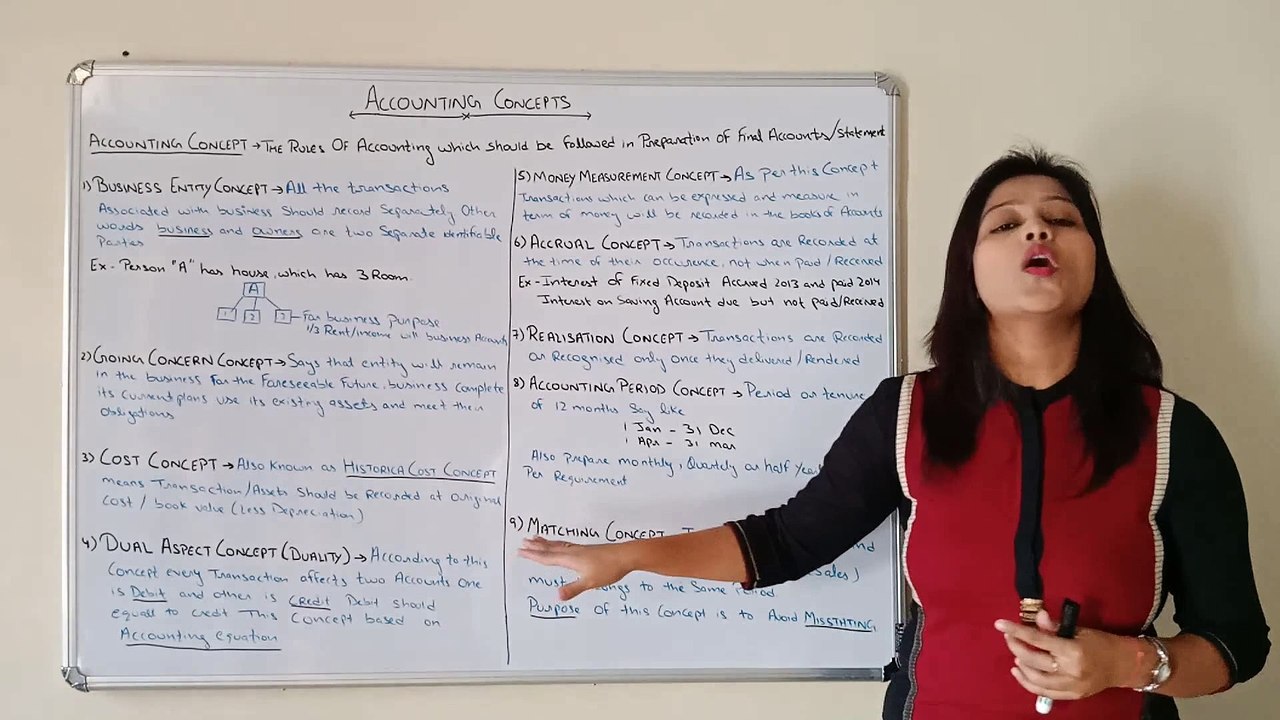 ACCOUNTING CONCEPTS
ACCOUNTING CONCEPT → THE RULES OF Accounting which should be followed in Preparation of Final Accounts/Statement
1) BUSINESS ENTITY CONCEPT → All the transactions
Associated with business should record Separately Other
words business and owners are two Separate identifiable
Parties
Ex- Person "A" has house, which has 3 Room.
A
1 2 3 - For business Purpose
1/3 Rent/income will business Accounts
2) GOING CONCERN CONCEPT → Says that entity will remain
in the business for the Foreseeable Future, business complete
its current plans use its existing assets and meet their
obligations
3) COST CONCEPT → Also Known as HISTORICA COST CONCEPT
means Transaction/Assets should be Recorded at original
cost / book value (Less Depreciation)
4) DUAL ASPECT CONCEPT (DUALITY) → According to this
Concept every Transaction affects two Accounts One
is Debit and other is Credit Debit should
equal to credit This Concept based on
Accounting equation
5) MONEY MEASUREMENT CONCEPT → As Per this Concept
Transactions which can be expressed and measure in
term of money will be recorded in the books of Accounts
6) ACCRUAL CONCEPT → Transactions are Recorded at
the time of their occurence, not when paid / Received
Ex- Interest of Fixed Deposit Accrued 2013 and paid 2014
Interest on Saving Account due but not paid/Received
7) REALISATION CONCEPT → Transactions are Recorded
or Recognised only once they delivered / Rendered
8) ACCOUNTING PERIOD CONCEPT → Period or tenure
of 12 months Say like
1 Jan - 31 Dec
1 Apr - 31 mar
Also Prepare monthly, Quartely or half Year
Per Requirement
9) MATCHING CONCEPT
Sales)
must to the Same Period
Purpose of this Concept is to Avoid MISSTATING.